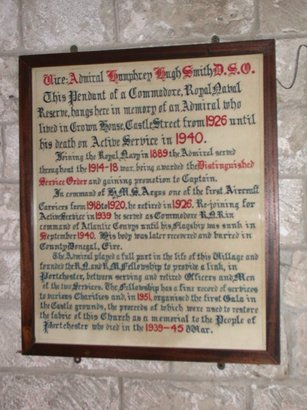 Vice-Admiral Humphrey Hugh Smith D.S.O.
This Pendant of a Commodore, Royal Naval
Reserve, hangs here in memory of an Admiral who
lived in Crown House, Castle Street from 1926 until
his death on Active Service in 1940.
Joining the Royal Navy in 1889 the Admiral served
throughout the 1914-18 war, being awarded the Distinguished
Service Order and gaining promotion to Captain.
In command of H.M.S. Argus one of the first Aircraft
Carriers from 1918 to 1920, he retired in 1926. Re-joining for
Active Service in 1939 he served as Commodore R.N.R. in
command of Atlantic Convoys until his Flagship was sunk in
September 1940. His body was later recovered and buried in
County Donegal, Eire.
The Admiral played a full part in the life of this Village and
founded the R.N. and R.M. Fellowship to provide a link, in
Portchester, between serving and retired Officers and Men
of the two Services. The Fellowship has a fine record of services
to various Charities and, in 1951, organised the first Gala in
the Castle grounds, the proceeds of which were used to restore
the fabric of this Church as a memorial to the People of
Portchester who died in the 1939-45 War.